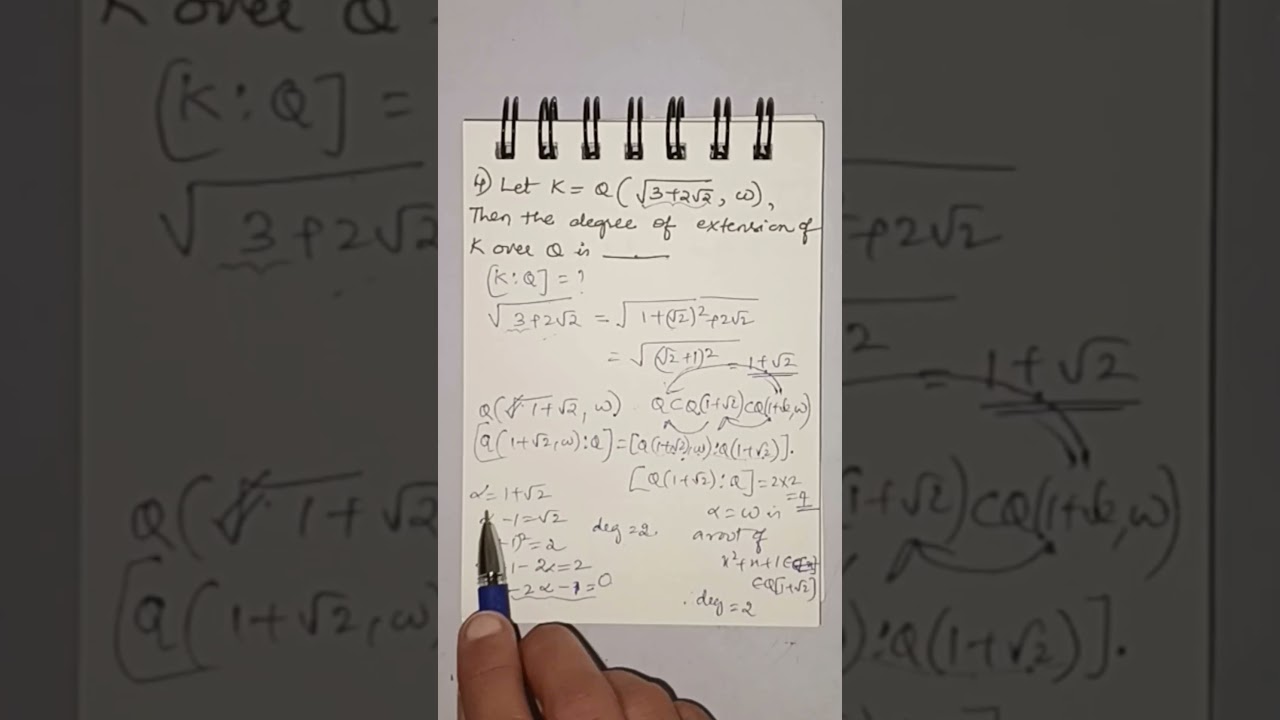 4) Let K = Q(√3+2√2, ω),
Then the degree of extension of
K over Q is ____
[K:Q] = ?
√3+2√2 = √1+(√2)²+2√2
= √(√2+1)² = 1+√2
Q(1+√2, ω) Q⊂Q(1+√2)⊂Q(1+√2,ω)
[Q(1+√2,ω):Q] = [Q(1+√2,ω):Q(1+√2)].
[Q(1+√2):Q] = 2×2
= 4
α = 1+√2
-1 = √2
-1)² = 2
1 - 2α = 2
- 2α - 1 = 0
deg = 2.
α = ω is
a root of
x²+x+1 ∈
∈Q[1+√2]
deg = 2